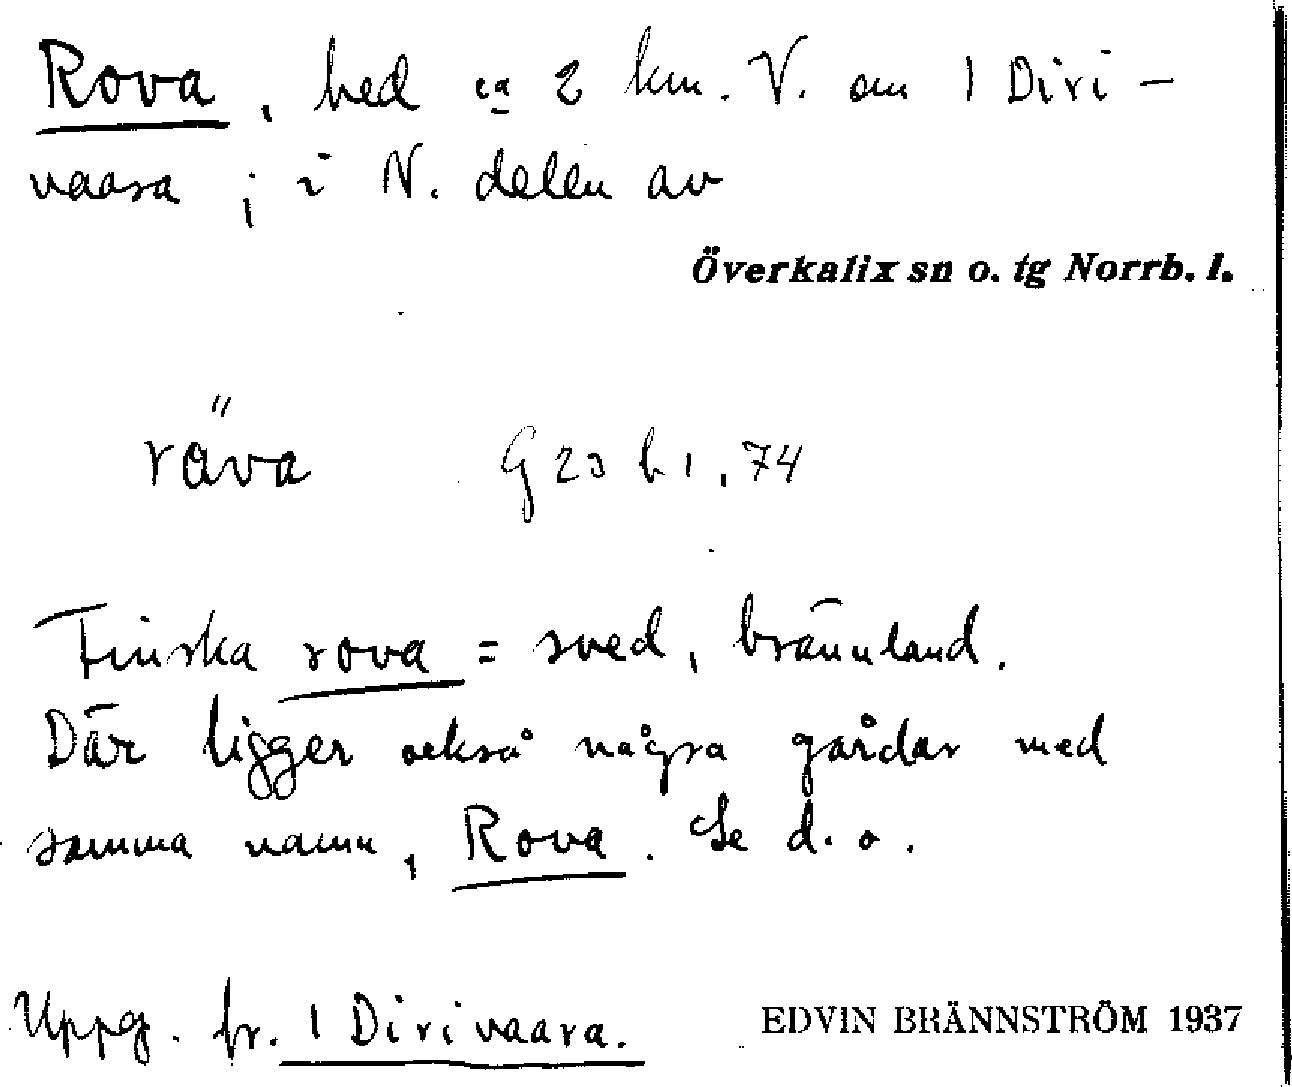 Rova, hed ca 2 km. V. om 1 Diri-
vaara; i N. delen av
Överkalix sn o. tg Norrb. l.
röva G 23 h 1, 74
Finska rova = sved, bränuland.
Där ligger också några gårdar med
samma namn, Rova. Se d. o.
Uppg. fr. 1 Dirivaara.
EDVIN BRÄNNSTRÖM 1937